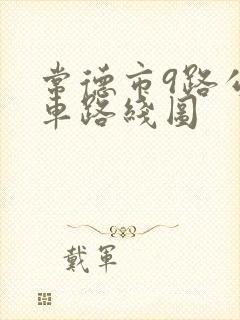 常德市9路公
車路綫圖
戴軍